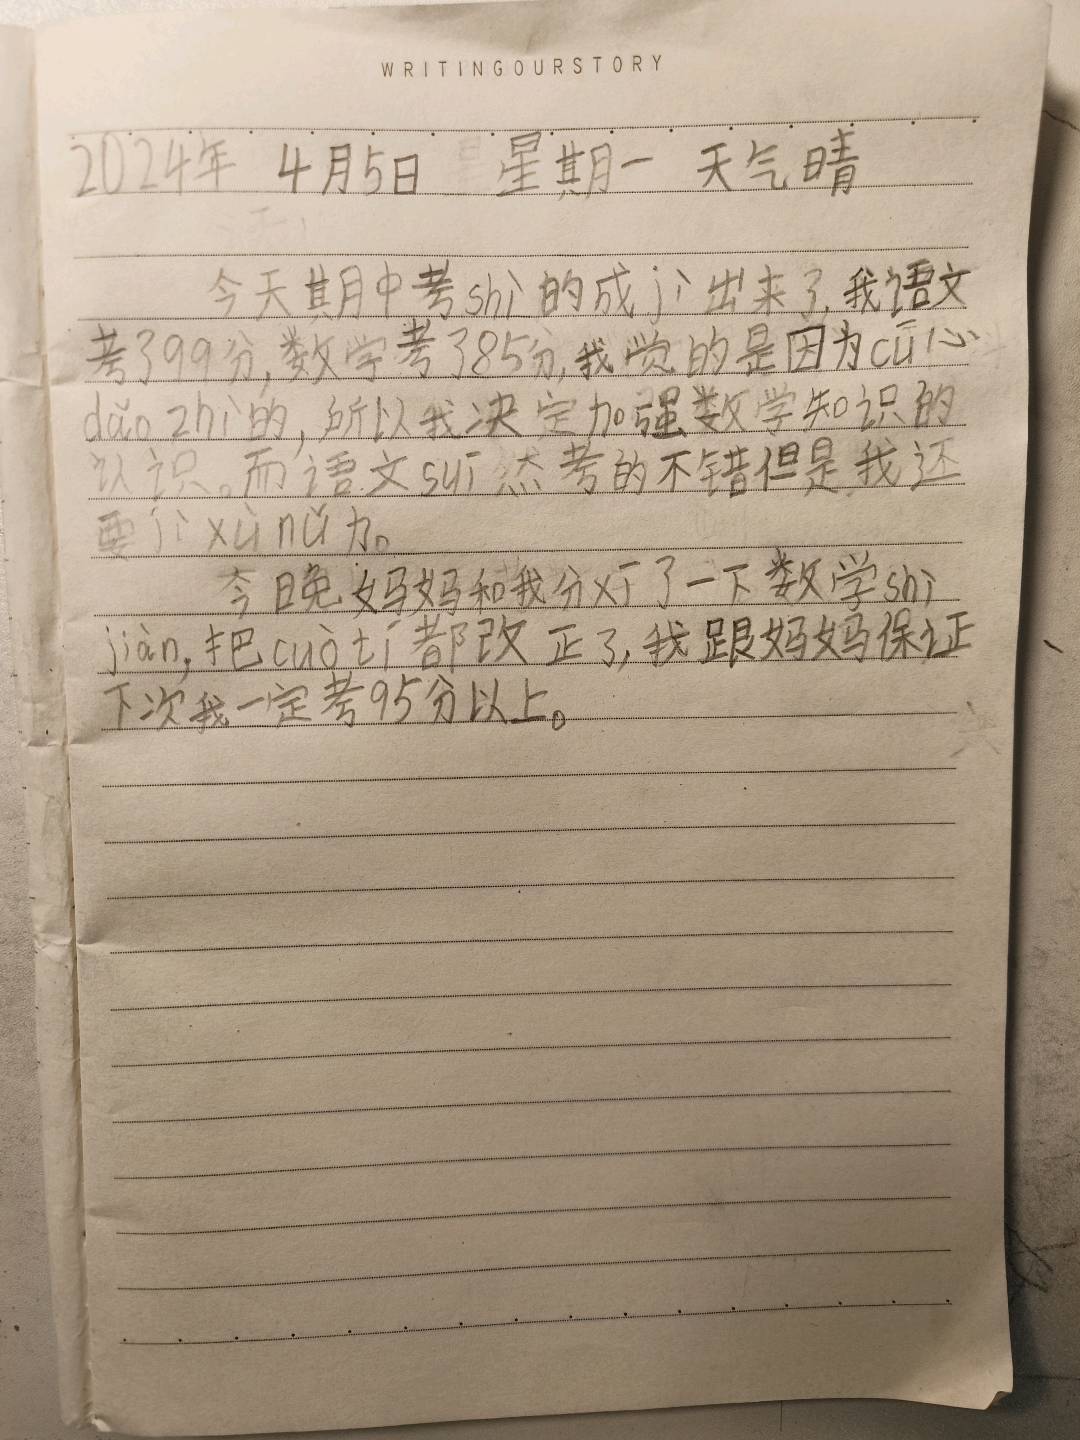 WRITINGOURSTORY
2024年 4月5日 星期一 天气晴
今天期中考shì的成jì出来了,我语文
考了99分,数学考了85分,我觉的是因为cū心
dǎo zhì的,所以我决定加强数学知识的
认识。而语文suī然考的不错但是我还
要jì xù nǔ力。
今日晚妈妈和我分xī了一下数学shì
jiàn,把cuò tí都改正了,我跟妈妈保证
下次我一定考95分以上。